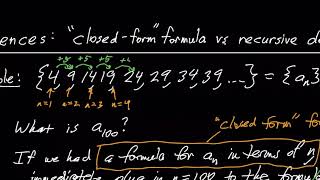 ences: "closed-form" formula vs recursive de
+5 +5 +5
ple: {4, 9, 14, 19, 24, 29, 34, 39, ...} = {aₙ}
n=1 n=2 n=3 n=4
"closed form" for
What is a₁₀₀?
If we had a formula for aₙ in terms of n
immediately plug in n=100 to the formula